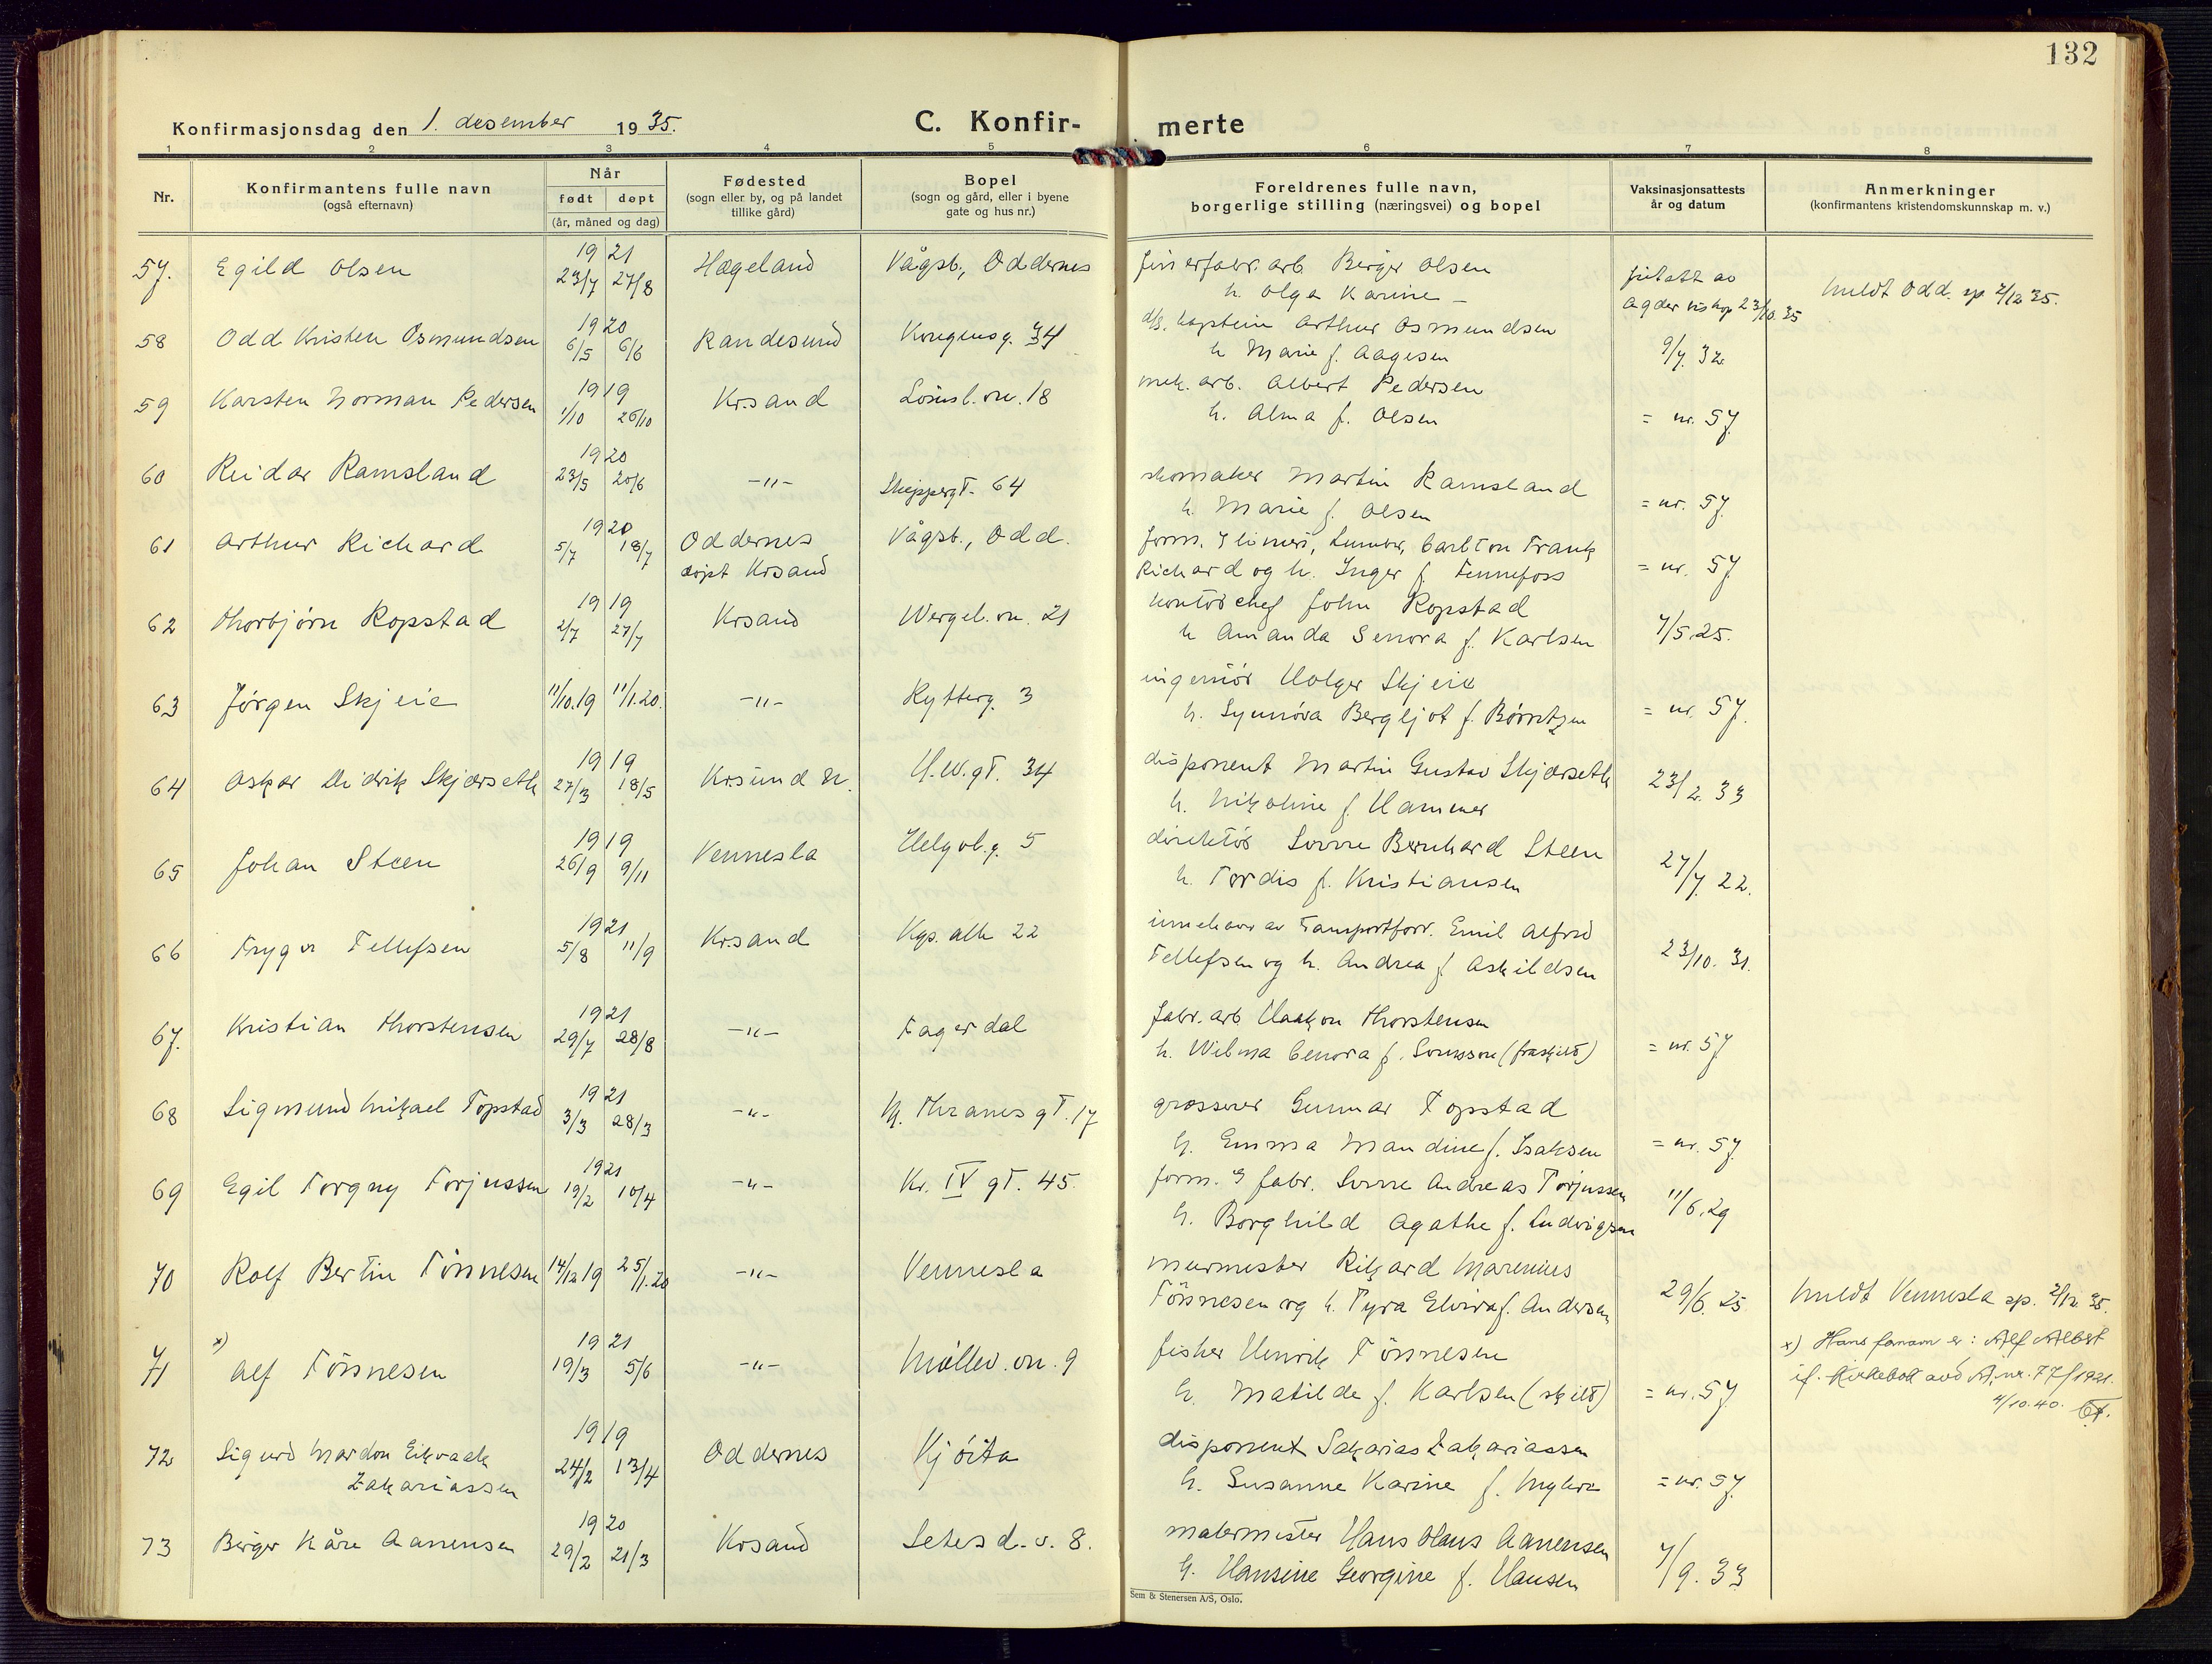 132
Konfirmasjonsdag den 1. desember 1935.
C. Konfir-merte
1 2 3 4 5 6 7 8
Nr.
Konfirmantens fulle navn
(også efternavn)
Når
født døpt
(år, måned og dag)
Fødested
(sogn eller by, og på landet
tillike gård)
Bopel
(sogn og gård, eller i byene
gate og hus nr.)
Foreldrenes fulle navn,
borgerlige stilling (næringsvei) og bopel
Vaksinasjonsattests
år og datum
Anmerkninger
(konfirmantens kristendomskunnskap m. v.)
57. Egild Olsen 1921 23/7 27/8 Hægeland Vågsb., Oddernes
finerfabr. arb Birger Olsen
h. Olga Karine —
fritatt av
Agder biskop 23/10.35
meldt Odd. sp 2/12 35.
58 Odd Kristen Osmundsen 1920 6/5 6/6 Randesund Kongensg. 34
d/s. kaptein Arthur Osmundsen
h Marie f. Aagesen
9/7. 32
59 Karsten Norman Pedersen 1919 1/10 26/10 Kr.sand Louisl. vn. 18
mek. arb. Albert Pedersen
h. Alma f. Olsen
= nr. 57
60 Reidar Ramsland 1920 23/5 20/6 -"- Skippergt. 64
skomaker Martin Ramsland
h. Marie f. Olsen
= nr. 57
61 Arthur Richard 1920 5/7 18/7 Oddernes Vågsb., Odd.
døpt Krsand
form. Carlton Frank
Richard og h. Inger f. Fennefoss
= nr. 57
62 Thorbjørn Ropstad 1919 2/7 27/7 Krsand Wergel. vn. 21
kontorchef John Ropstad
h Amanda Senora f. Karlsen
7/5.25.
63 Jørgen Skjeie 11/10.19 11/1.20. -"- Rytterg. 3
ingeniør Holger Skjeie
h. Synnøva Bergljot f. Børretzen
= nr. 57.
64 Oskar Didrik Skjærseth 1919 27/3 18/5 Kr.sund N. H.W.gt. 34
disponent Martin Gustav Skjærseth
h. Nikoline f. Hammer
23/2. 33
65 Johan Steen 1919 26/9 9/11 Vennesla Helgol.g. 5
direktør Sverre Bernhard Steen
h. Tordis f. Kristiansen
27/7. 22.
66 Trygve Tellefsen 1921 5/8 11/9 Kr.sand Kgs. alle 22
innehaver av Transportforr. Emil Alfred
Tellefsen og h. Andrea f. Askildsen
23/10. 31.
67. Kristian Thorstensen 1921 29/7 28/8 -"- Fagerdal
fabr. arb Haakon Thorstensen
h. Wilma Cenora f. Svensson (fraskilt)
= nr. 57
68 Sigmund Mikael Topstad 1921 3/3 28/3 -"- M. Thranes gt. 17
grosserer Gunnar Topstad
h. Emma Mandine f. Isaksen
= nr. 57
69 Egil Torgny Torjussen 1921 19/2 10/4 -"- Kr. IV gt. 45.
form. fabr. Sverre Andreas Torjussen
h. Borghild Agathe f. Ludvigsen
11/6.29
70 Rolf Bertin Tønnesen 14/12 19 25/1.20 -"- Vennesla
murmester Rikard Marenius
Tønnesen og h. Tyra Elvira f. Andersen
29/6. 25
meldt Vennesla sp. 2/12 35.
71 x) Alf Tønnesen 1921 19/3 5/6 -"- Møllev. vn. 9
fisker Henrik Tønnesen
h. Matilde f. Karlsen (skilt)
= nr. 57
x) Hans fornavn er: Alf Albert
if. kirkebok avd A. nr. 77/1921.
4/10.40.
72 Sigurd Mardon Eikvaak 1919 24/2 13/4 Oddernes Kjøita
Zakariassen
disponent Sakarias Zakariassen
h. Susanne Karine f. Myhre
= nr. 57.
73 Birger Kåre Aanensen 1920 29/2 21/3 Krsand Setesd. v. 8.
malermester Hans Olaus Aanensen
h. Hansine Georgine f. Hansen
7/9. 33
Sem & Stenersen A/S, Oslo.